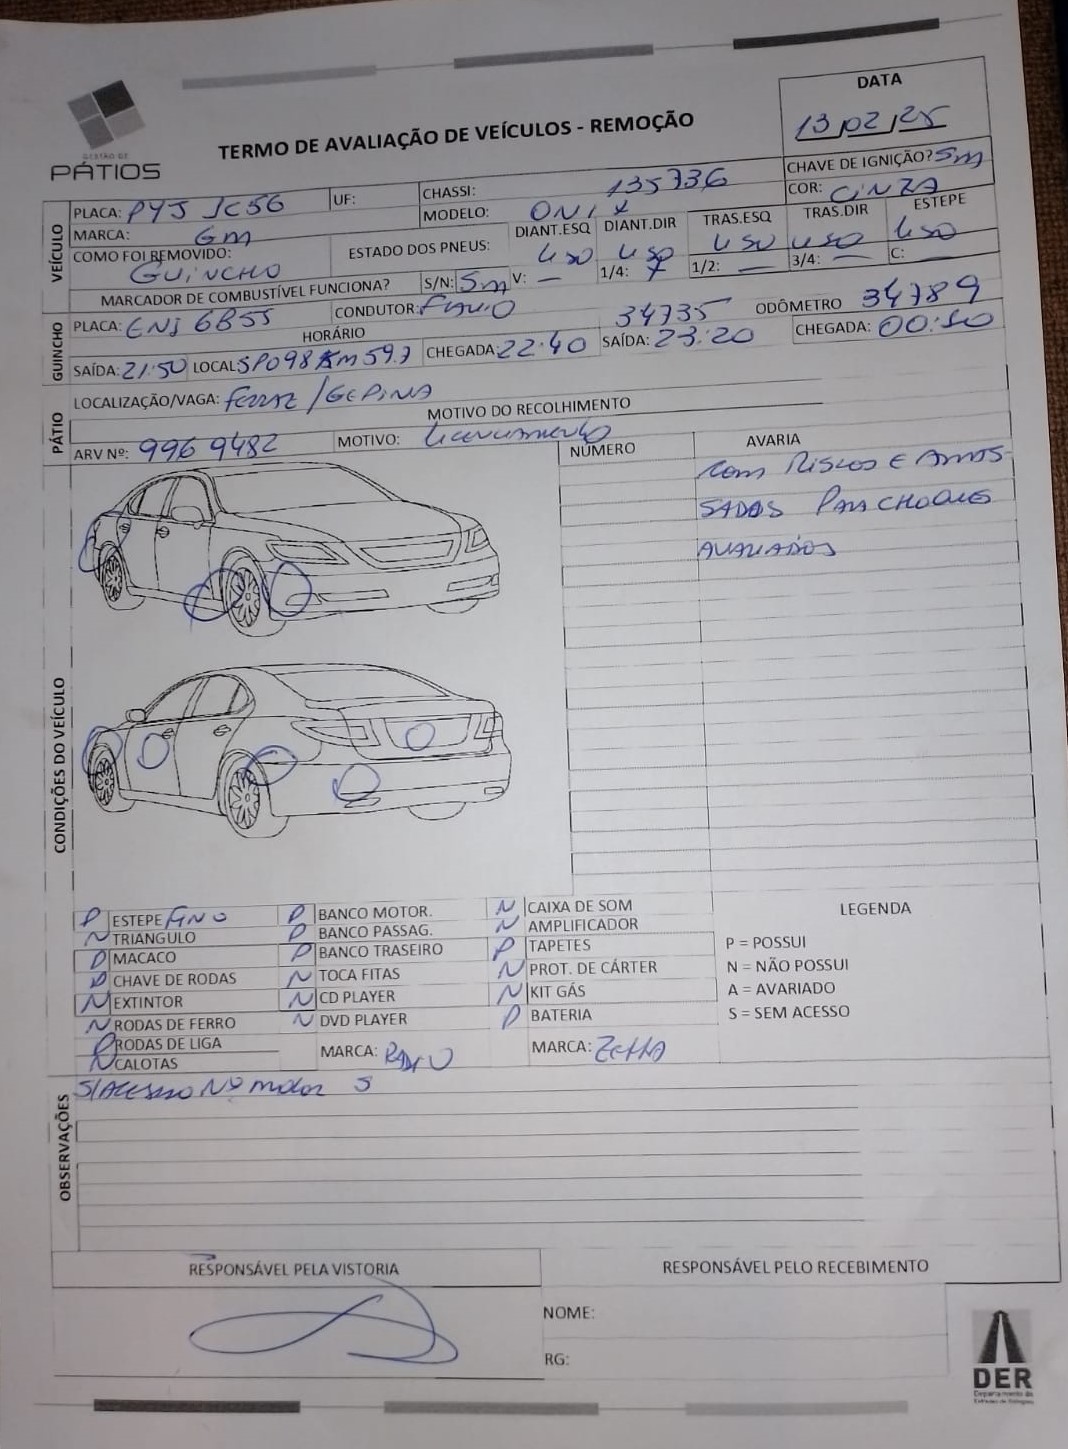 GESTÃO DE
PÁTIOS
TERMO DE AVALIAÇÃO DE VEÍCULOS - REMOÇÃO
DATA
13/02/25
VEÍCULO
PLACA: PYJ JC56
UF:
CHASSI: 135736
CHAVE DE IGNIÇÃO? Sim
MARCA: GM
MODELO: ONIX
COR: CINZA
COMO FOI REMOVIDO: GUINCHO
ESTADO DOS PNEUS:
DIANT.ESQ USO
DIANT.DIR USO
TRAS.ESQ USO
TRAS.DIR USO
ESTEPE USO
MARCADOR DE COMBUSTÍVEL FUNCIONA?
S/N: Sim
V: —
1/4:
1/2: —
3/4: —
C: —
GUINCHO
PLACA: ENJ 6B55
CONDUTOR: FLAVIO
34735
ODÔMETRO 34789
HORÁRIO
SAÍDA: 21:50
LOCAL SP098 KM 59.7
CHEGADA: 22:40
SAÍDA: 23:20
CHEGADA: 00:10
PÁTIO
LOCALIZAÇÃO/VAGA: FERRAZ /
MOTIVO DO RECOLHIMENTO
ARV Nº: 996 9482
MOTIVO: Licenciamento
CONDIÇÕES DO VEÍCULO
NÚMERO
AVARIA
Com RISCOS E AMAS-
SADOS PARA CHOQUES
AVARIADOS
P ESTEPE FINO
N TRIANGULO
P MACACO
P CHAVE DE RODAS
N EXTINTOR
N RODAS DE FERRO
P RODAS DE LIGA
N CALOTAS
P BANCO MOTOR.
P BANCO PASSAG.
P BANCO TRASEIRO
N TOCA FITAS
N CD PLAYER
N DVD PLAYER
MARCA: RADIO
N CAIXA DE SOM
N AMPLIFICADOR
P TAPETES
N PROT. DE CÁRTER
N KIT GÁS
P BATERIA
MARCA: ZETTA
LEGENDA
P = POSSUI
N = NÃO POSSUI
A = AVARIADO
S = SEM ACESSO
OBSERVAÇÕES
S/ACESSO Nº MOTOR S
RESPONSÁVEL PELA VISTORIA
RESPONSÁVEL PELO RECEBIMENTO
NOME:
RG:
DER
Departamento de
Estradas de Rodagem